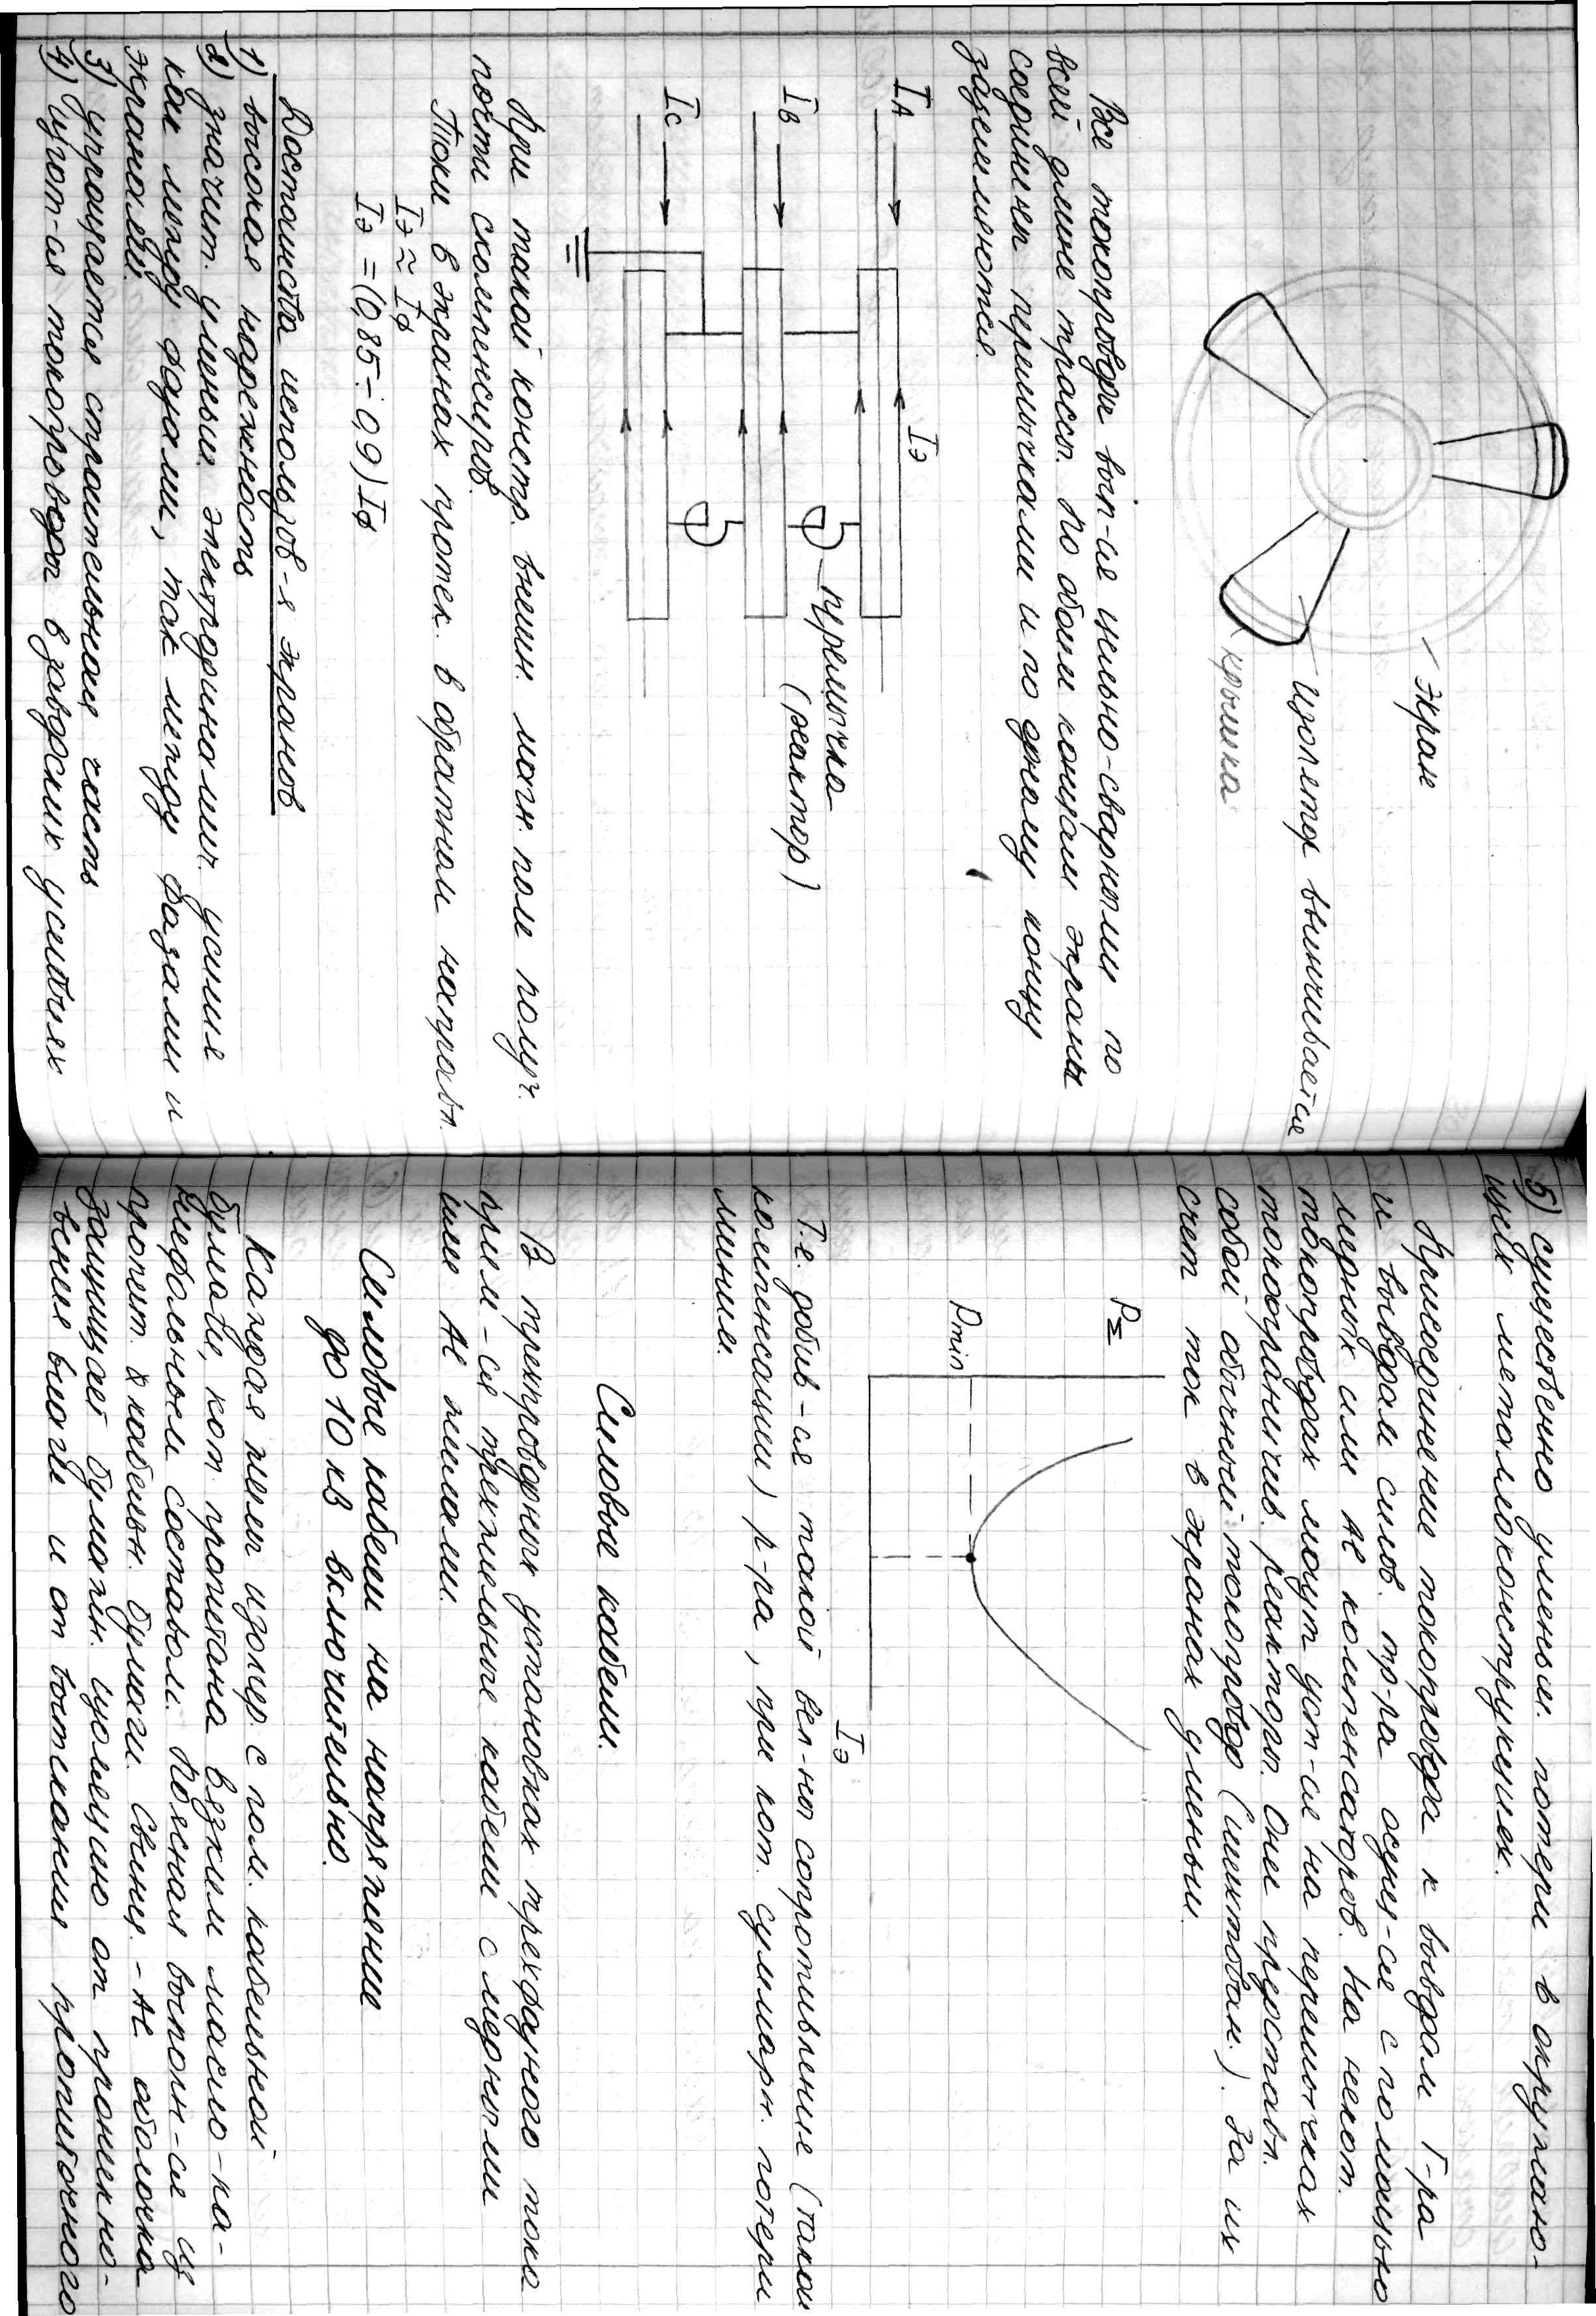 экран
изолятор вынимается
крышка
Все токопроводы вып-ся цельно-сварными по
всей длине трассы. По обоим концам экраны
соединены перемычками и по одному концу
заземляются.
IА
Iэ
IВ
IС
перемычка
(реактор)
При такой констр. внешн. магн. поле получ.
почти скомпенсиров.
Токи в экранах протек. в обратном направл.
Iэ ≈ Iф
Iэ = (0,85÷0,9) Iф
Достоинства использов-я экранов
1) высокая надежность
2) значит. уменьш. электродинамич. усилия
как между фазами, так между фазами и
экранами.
3) упрощается строительная часть
4) изгот-ся токопровод в заводских условиях
5) существенно уменьш. потери в окружаю-
щих металлоконструкциях.
Присоединение токопровода к выводам Г-ра
и выводам силов. тр-ра осущ-ся с помощью
медных или Al компенсаторов. На некот.
токопроводах могут уст-ся на перемычках
токоограничив. реакторы. Они представл.
собой обычный токопровод (шихтован.). За их
счет ток в экранах уменьш.
PΣ
Pmin
Iэ
Т.е. добив-ся такой вел-ны сопротивление (такой
компенсации) р-ра, при кот. суммарн. потери
миним.
Силовые кабели.
В трехпроводных установках трехфазного тока
прим-ся трехжильные кабели с медными
или Al жилами.
Силовые кабели на напряжение
до 10 кв включительно.
Каждая жила изолир. с пом. кабельной
бумаги, кот. пропитана вязким масло-ка-
нифольным составом. Поясная выполн-ся из
пропит. кабельн. бумаги. Свинц.-Al оболочка
защищает бумажн. изоляцию от проникно-
вения влаги и от вытекания пропиточного